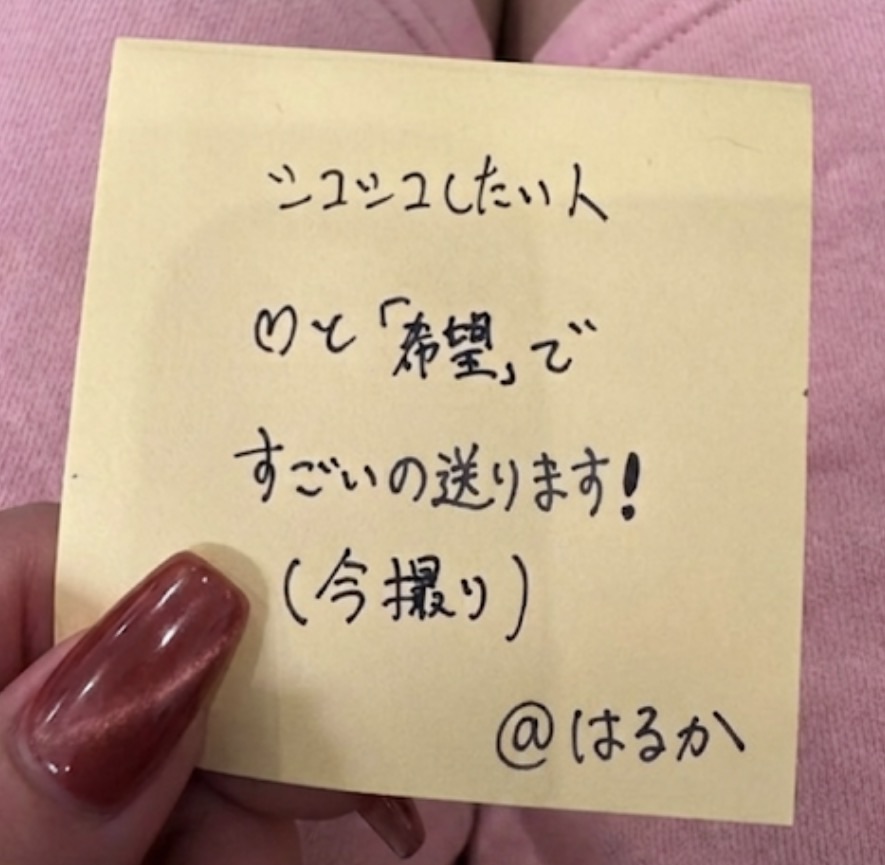 シコシコしたい人
♡と「希望」で
すごいの送ります!
(今撮り)
@はるか